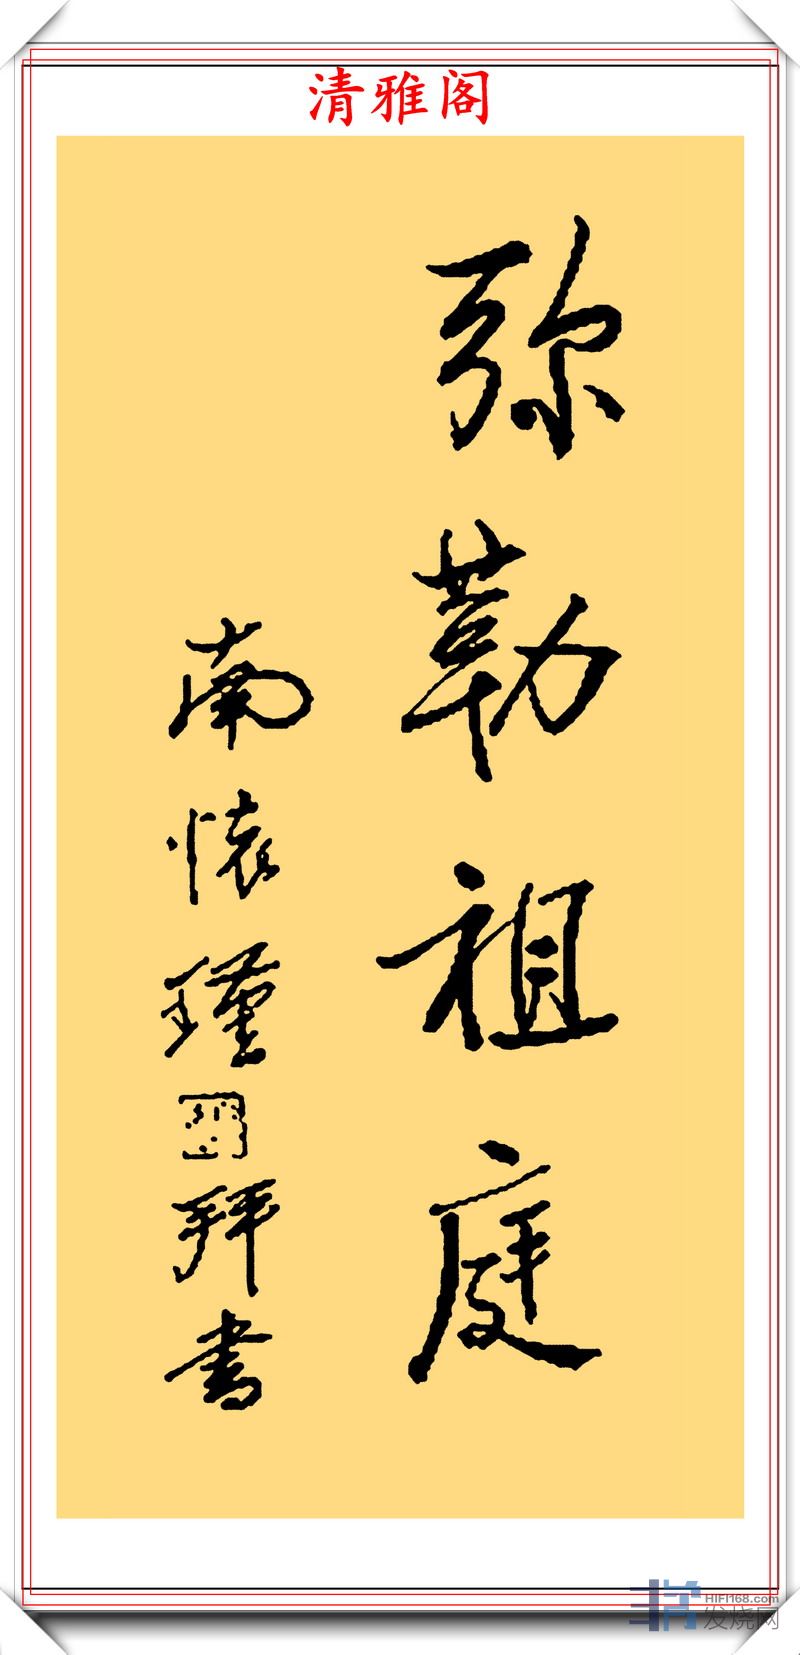 清雅阁
弥勒祖庭
南怀瑾拜书
HIFI168.com
发烧网